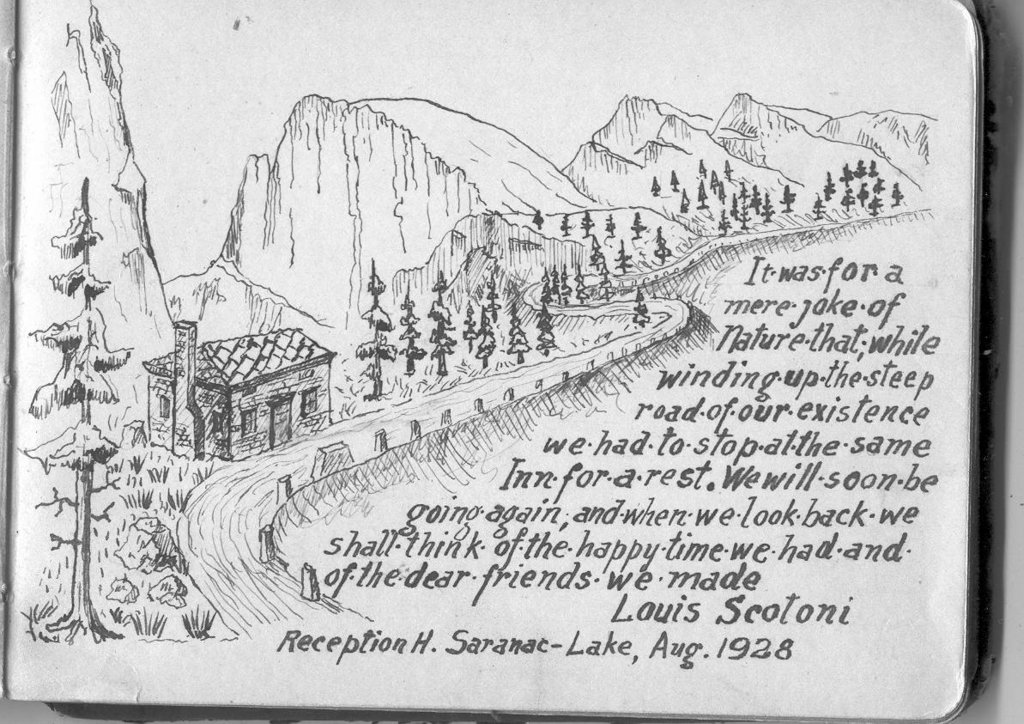 It·was·for a
mere·joke·of
Nature·that, while
winding·up·the·steep
road·of·our·existence
we·had·to·stop·at·the·same
Inn·for·a·rest. We·will·soon·be
going·again, and·when·we·look·back·we
shall·think of·the·happy·time·we·had·and·
of·the·dear·friends·we·made
Louis Scotoni
Reception H. Saranac-Lake, Aug. 1928